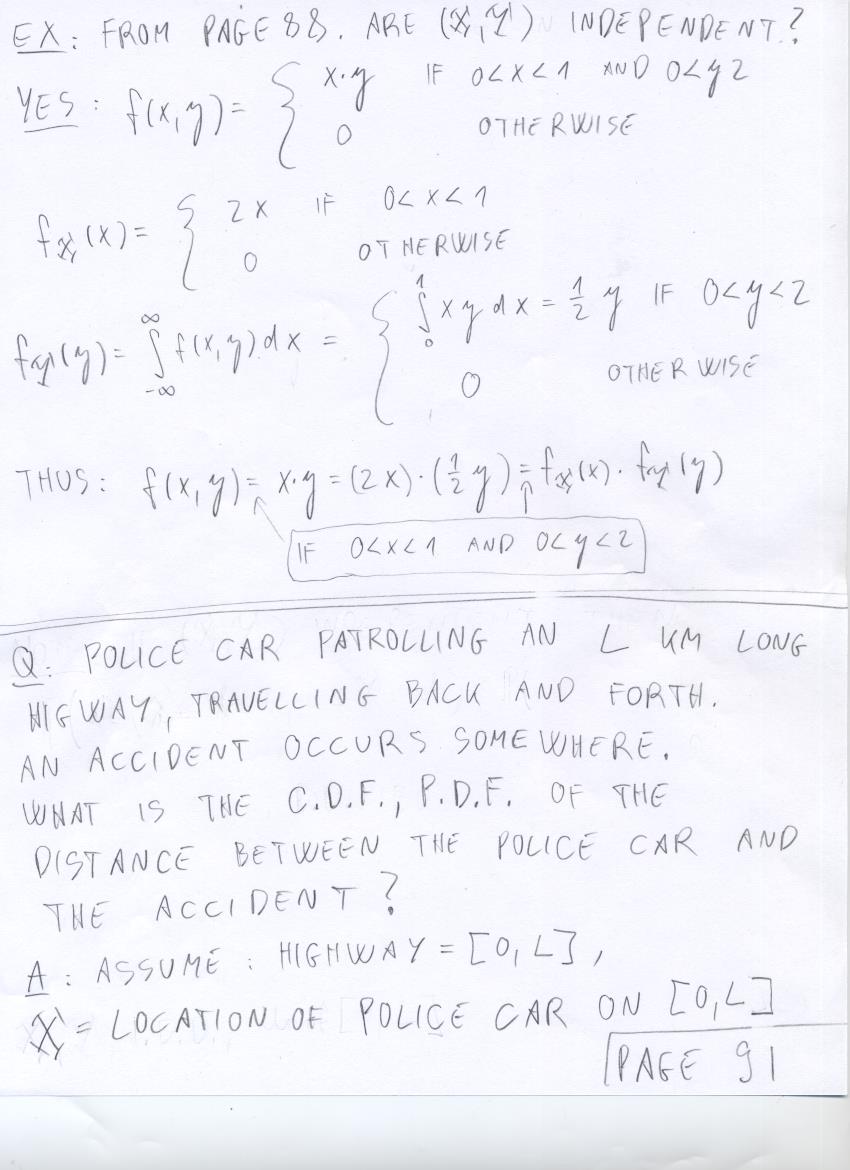 EX: FROM PAGE 88. ARE (X, Y) INDEPENDENT?
YES: f(x,y) = { x·y IF 0<x<1 AND 0<y2
0 OTHERWISE
f_X(x) = { 2x IF 0<x<1
0 OTHERWISE
f_Y(y) = ∫_{-∞}^{∞} f(x,y) dx = { ∫_0^1 xy dx = 1/2 y IF 0<y<2
0 OTHERWISE
THUS: f(x,y) = x·y = (2x)·(1/2 y) = f_X(x)·f_Y(y)
IF 0<x<1 AND 0<y<2
Q: POLICE CAR PATROLLING AN L KM LONG
HIGWAY, TRAVELLING BACK AND FORTH.
AN ACCIDENT OCCURS SOMEWHERE.
WHAT IS THE C.D.F., P.D.F. OF THE
DISTANCE BETWEEN THE POLICE CAR AND
THE ACCIDENT?
A: ASSUME: HIGHWAY = [0, L],
X = LOCATION OF POLICE CAR ON [0, L]
PAGE 91